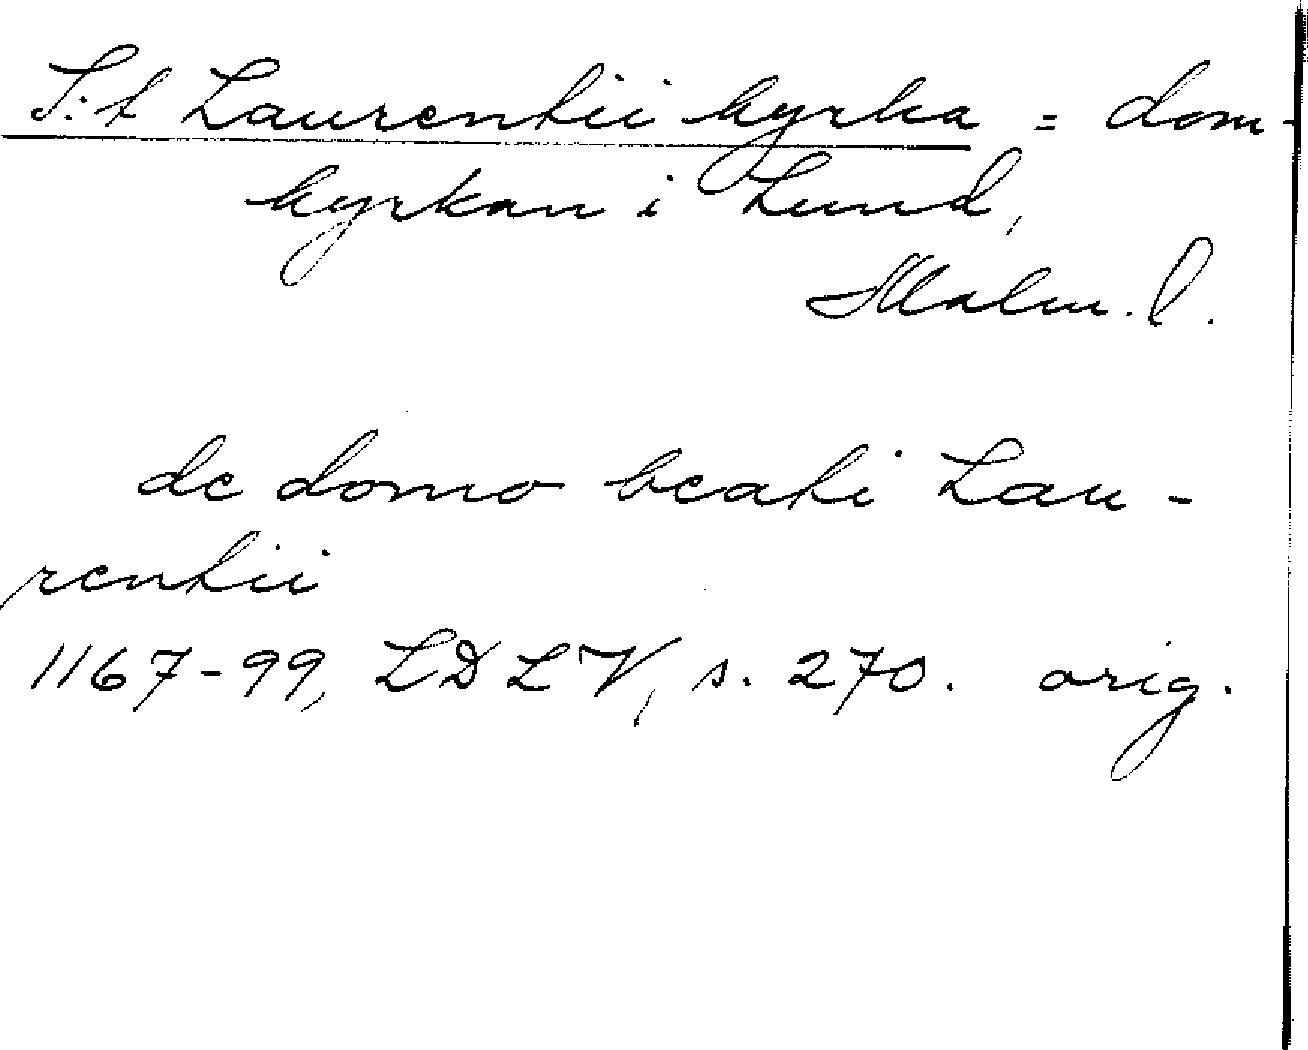 S:t Laurentii kyrka = dom-
kyrkan i Lund,
Malm. l.
de domo beati Lau-
rentii
1167-99, LDLV, s. 270. orig.